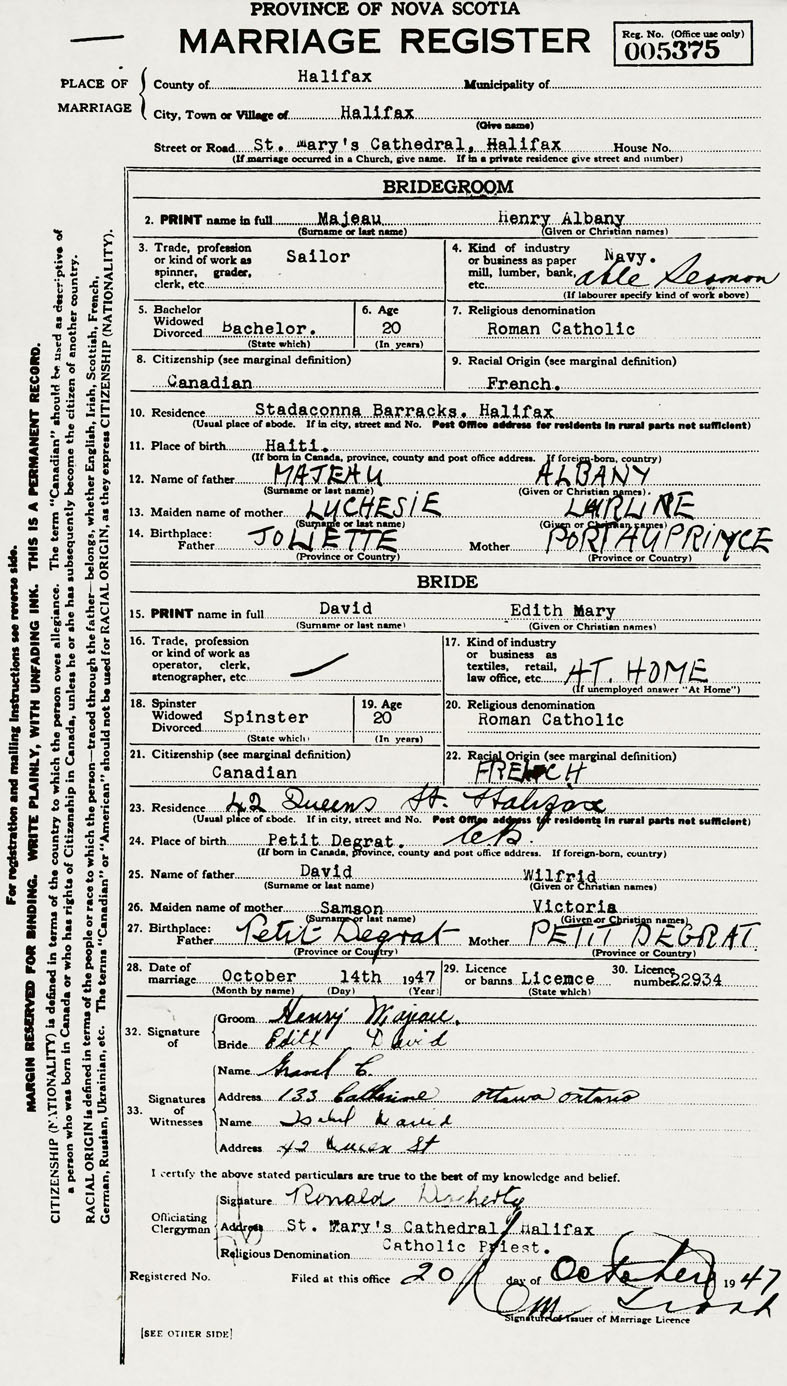 PROVINCE OF NOVA SCOTIA
MARRIAGE REGISTER
Reg. No. (Office use only)
005375
PLACE OF MARRIAGE
County of Halifax Municipality of
City, Town or Village of Halifax
(Give name)
Street or Road St. Mary's Cathedral, Halifax House No.
(If marriage occurred in a Church, give name. If in a private residence give street and number)
BRIDEGROOM
2. PRINT name in full Majeau Henry Albany
(Surname or last name) (Given or Christian names)
3. Trade, profession or kind of work as spinner, grader, clerk, etc. Sailor
4. Kind of industry or business as paper mill, lumber, bank, etc. Navy. able Seamon
(If labourer specify kind of work above)
5. Bachelor Widowed Divorced Bachelor.
(State which)
6. Age 20
(In years)
7. Religious denomination
Roman Catholic
8. Citizenship (see marginal definition)
Canadian
9. Racial Origin (see marginal definition)
French.
10. Residence Stadaconna Barracks. Halifax
(Usual place of abode. If in city, street and No. Post Office address for residents in rural parts not sufficient)
11. Place of birth Haiti.
(If born in Canada, province, county and post office address. If foreign-born, country)
12. Name of father MAJEAU ALBANY
(Surname or last name) (Given or Christian names)
13. Maiden name of mother LUCHESIE LAIRLINE
(Surname or last name) (Given or Christian names)
14. Birthplace: Father JOLIETTE Mother PORT AU PRINCE
(Province or Country) (Province or Country)
BRIDE
15. PRINT name in full David Edith Mary
(Surname or last name) (Given or Christian names)
16. Trade, profession or kind of work as operator, clerk, stenographer, etc.
17. Kind of industry or business as textiles, retail, law office, etc. AT. HOME
(If unemployed answer "At Home")
18. Spinster Widowed Divorced Spinster
(State which)
19. Age 20
(In years)
20. Religious denomination
Roman Catholic
21. Citizenship (see marginal definition)
Canadian
22. Racial Origin (see marginal definition)
FRENCH
23. Residence 42 Queens St. Halifax
(Usual place of abode. If in city, street and No. Post Office address of residents in rural parts not sufficient)
24. Place of birth Petit Degrat. C.B.
(If born in Canada, province, county and post office address. If foreign-born, country)
25. Name of father David Wilfrid
(Surname or last name) (Given or Christian names)
26. Maiden name of mother Samson Victoria
(Surname or last name) (Given or Christian names)
27. Birthplace: Father Petit Degrat Mother PETIT DEGRAT
(Province or Country) (Province or Country)
28. Date of marriage October 14th 1947
(Month by name) (Day) (Year)
29. Licence or banns Licence
(State which)
30. Licence number 22934
32. Signature of
Groom Henry Majeau.
Bride Edith David
33. Signatures of Witnesses
Name Gravel C.
Address 133 Catherine ottawa ontario
Name Isabel David
Address 42 Queen St
I certify the above stated particulars are true to the best of my knowledge and belief.
Officiating Clergyman
Signature Ronald Docherty
Address St. Mary's Cathedral Halifax
Religious Denomination Catholic Priest.
Registered No. Filed at this office 20 day of October 1947
Signature of Issuer of Marriage Licence
[SEE OTHER SIDE]
For registration and mailing instructions see reverse side.
MARGIN RESERVED FOR BINDING. WRITE PLAINLY, WITH UNFADING INK. THIS IS A PERMANENT RECORD.
CITIZENSHIP (NATIONALITY) is defined in terms of the country to which the person owes allegiance. The term "Canadian" should be used as descriptive of
a person who was born in Canada or who has rights of Citizenship in Canada, unless he or she has subsequently become the citizen of another country.
RACIAL ORIGIN is defined in terms of the people or race to which the person—traced through the father—belongs, whether English, Irish, Scottish, French,
German, Russian, Ukrainian, etc. The terms "Canadian" or "American" should not be used for RACIAL ORIGIN, as they express CITIZENSHIP (NATIONALITY).